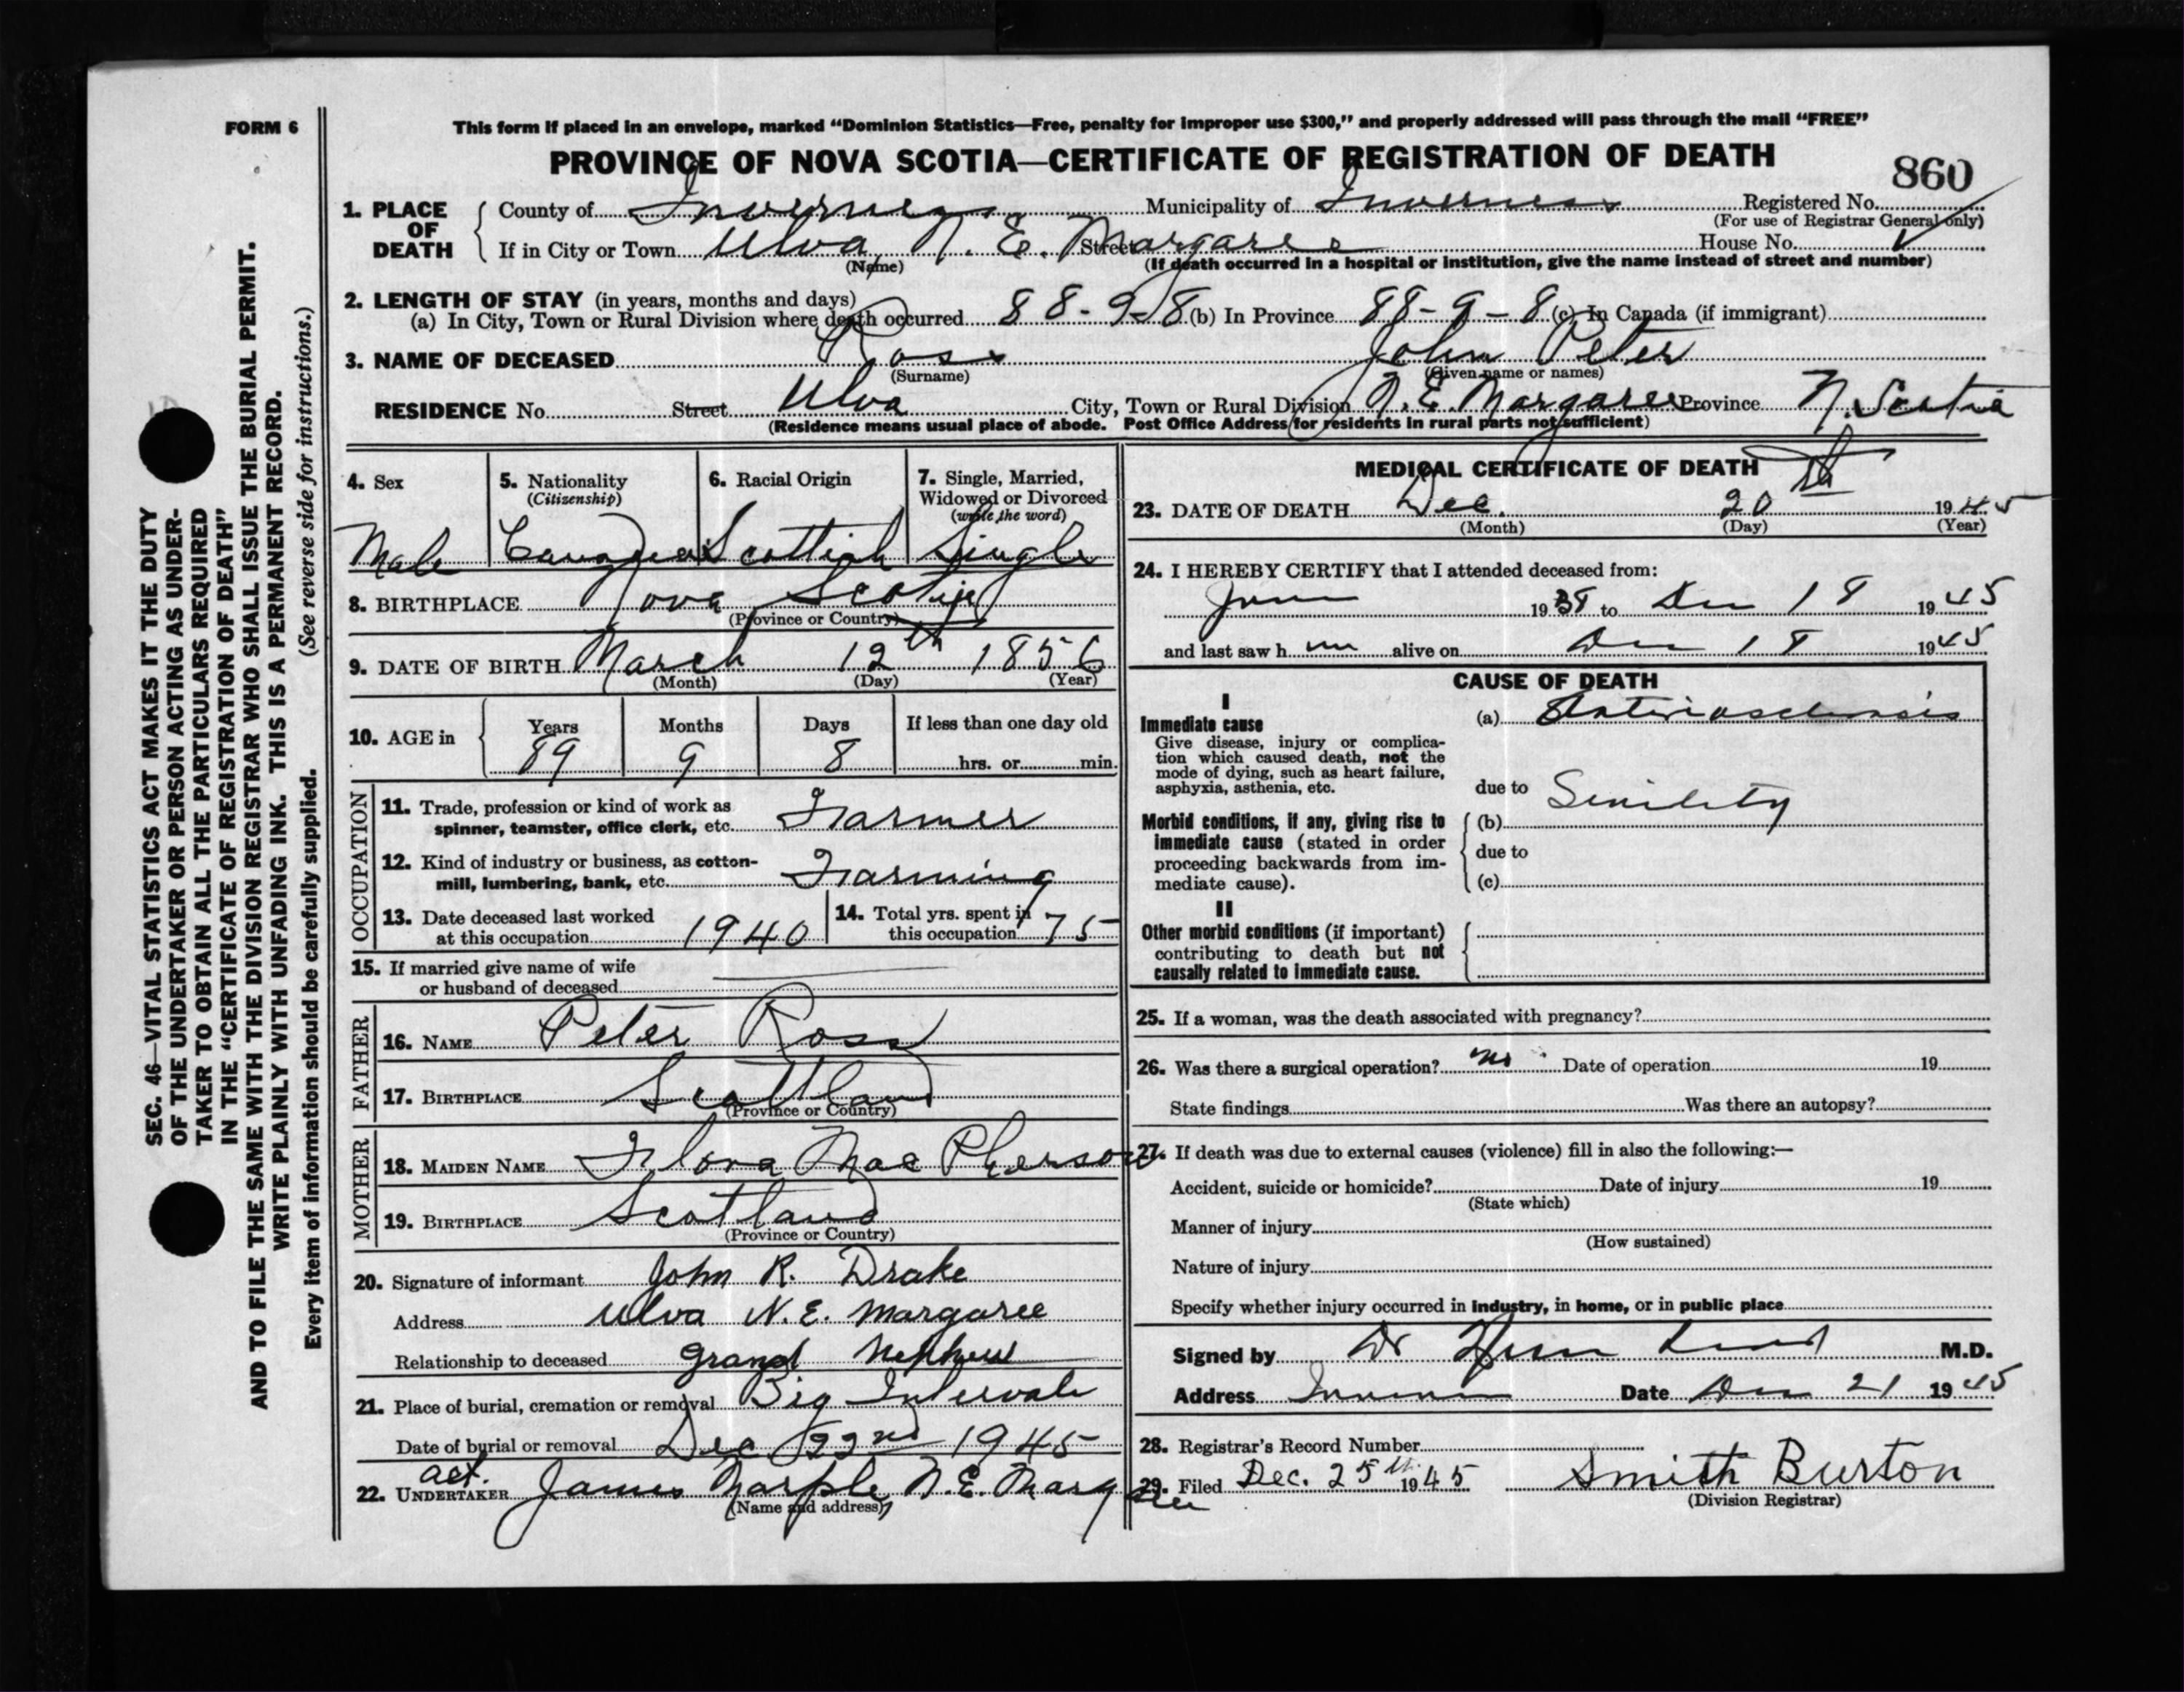 FORM 6
This form if placed in an envelope, marked “Dominion Statistics—Free, penalty for improper use $300,” and properly addressed will pass through the mail “FREE”
PROVINCE OF NOVA SCOTIA—CERTIFICATE OF REGISTRATION OF DEATH
860
1. PLACE OF DEATH
County of Inverness Municipality of Inverness Registered No.
(For use of Registrar General only)
If in City or Town Ulva N. E. Margaree Street House No.
(Name) (If death occurred in a hospital or institution, give the name instead of street and number)
2. LENGTH OF STAY (in years, months and days)
(a) In City, Town or Rural Division where death occurred 88-9-8 (b) In Province 88-9-8 (c) In Canada (if immigrant)
3. NAME OF DECEASED Ross John Peter
(Surname) (Given name or names)
RESIDENCE No. Street Ulva City, Town or Rural Division N. E. Margaree Province N. Scotia
(Residence means usual place of abode. Post Office Address for residents in rural parts not sufficient)
4. Sex
Male
5. Nationality
(Citizenship)
Canadian
6. Racial Origin
Scottish
7. Single, Married,
Widowed or Divorced
(write the word)
Single
8. BIRTHPLACE Nova Scotia
(Province or Country)
9. DATE OF BIRTH March 12th 1856
(Month) (Day) (Year)
10. AGE in
Years Months Days If less than one day old
89 9 8 hrs. or min.
OCCUPATION
11. Trade, profession or kind of work as
spinner, teamster, office clerk, etc. Farmer
12. Kind of industry or business, as cotton-
mill, lumbering, bank, etc. Farming
13. Date deceased last worked
at this occupation 1940
14. Total yrs. spent in
this occupation 75
15. If married give name of wife
or husband of deceased
FATHER
16. NAME Peter Ross
17. BIRTHPLACE Scotland
(Province or Country)
MOTHER
18. MAIDEN NAME Flora Mac Pherson
19. BIRTHPLACE Scotland
(Province or Country)
20. Signature of informant John R. Drake
Address Ulva N. E. Margaree
Relationship to deceased grand Nephew
21. Place of burial, cremation or removal Big Intervale
Date of burial or removal Dec 22nd 1945
act.
22. UNDERTAKER James Marple N. E. Margaree
(Name and address)
MEDICAL CERTIFICATE OF DEATH
23. DATE OF DEATH Dec. 20th 1945
(Month) (Day) (Year)
24. I HEREBY CERTIFY that I attended deceased from:
June 1938 to Dec 18 1945
and last saw h im alive on Dec 18 1945
CAUSE OF DEATH
I
Immediate cause
Give disease, injury or complica-
tion which caused death, not the
mode of dying, such as heart failure,
asphyxia, asthenia, etc.
(a) Arteriosclerosis
due to Senility
Morbid conditions, if any, giving rise to
immediate cause (stated in order
proceeding backwards from im-
mediate cause).
(b)
due to
(c)
II
Other morbid conditions (if important)
contributing to death but not
causally related to immediate cause.
25. If a woman, was the death associated with pregnancy?
26. Was there a surgical operation? no Date of operation 19
State findings Was there an autopsy?
27. If death was due to external causes (violence) fill in also the following:—
Accident, suicide or homicide? Date of injury 19
(State which)
Manner of injury
(How sustained)
Nature of injury
Specify whether injury occurred in industry, in home, or in public place
Signed by Dr M.D.
Address Inverness Date Dec 21 1945
28. Registrar's Record Number
29. Filed Dec. 25th 1945 Smith Burton
(Division Registrar)
SEC. 46—VITAL STATISTICS ACT MAKES IT THE DUTY
OF THE UNDERTAKER OR PERSON ACTING AS UNDER-
TAKER TO OBTAIN ALL THE PARTICULARS REQUIRED
IN THE “CERTIFICATE OF REGISTRATION OF DEATH”
AND TO FILE THE SAME WITH THE DIVISION REGISTRAR WHO SHALL ISSUE THE BURIAL PERMIT.
WRITE PLAINLY WITH UNFADING INK. THIS IS A PERMANENT RECORD.
Every item of information should be carefully supplied. (See reverse side for instructions.)